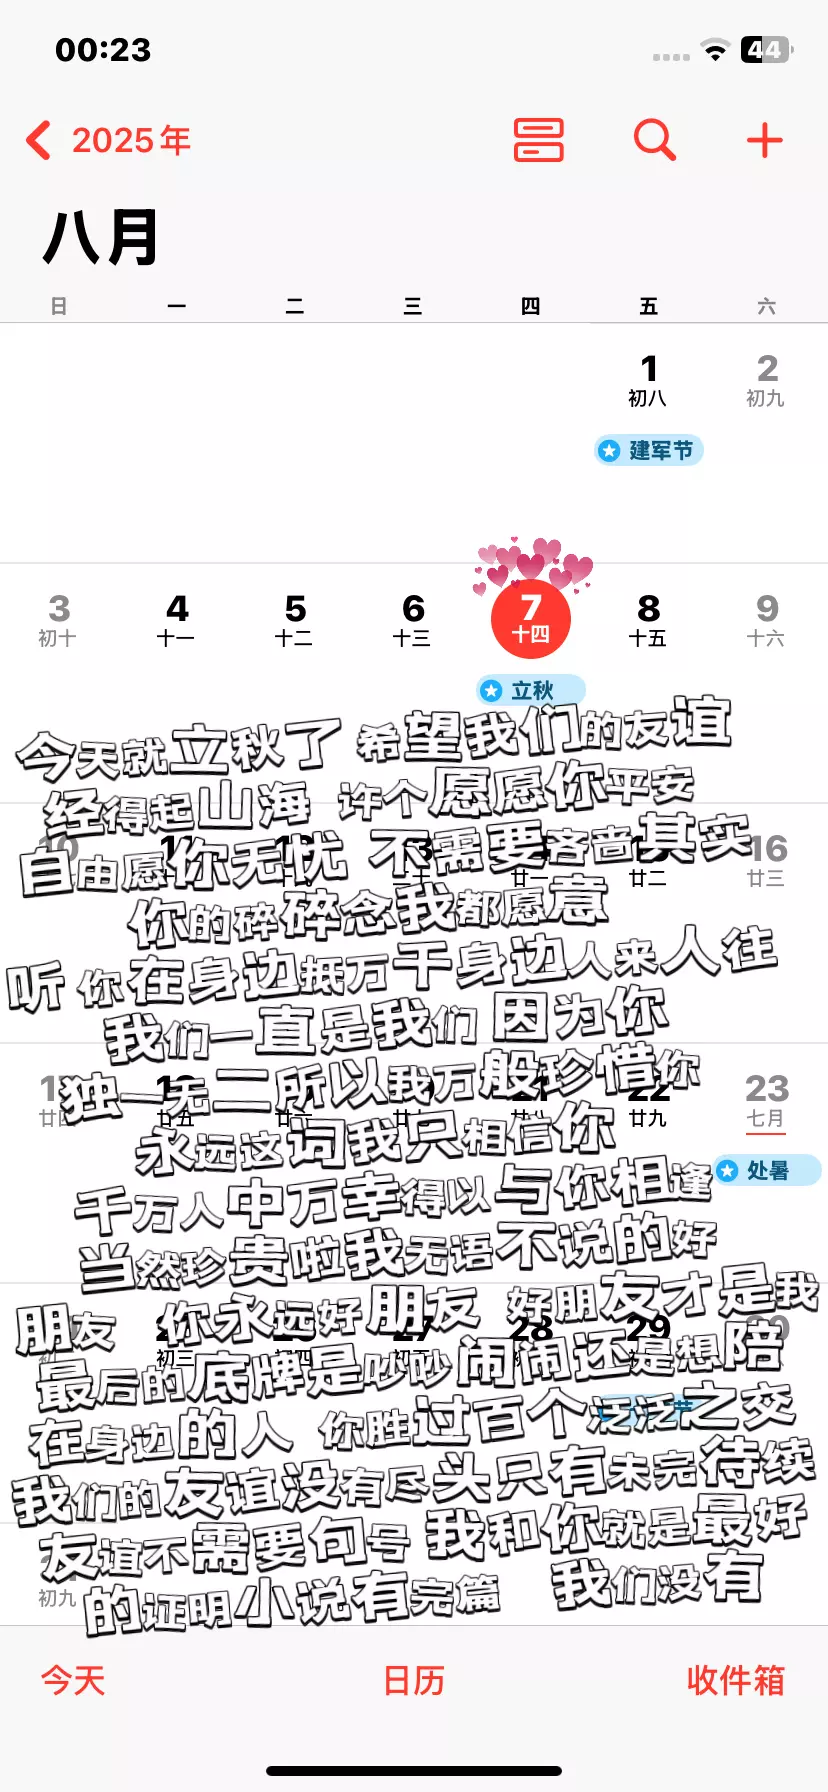 00:23
44
2025年
八月
日 一 二 三 四 五 六
1 2
初八 初九
建军节
3 4 5 6 7 8 9
初十 十一 十二 十三 十四 十五 十六
立秋
今天就立秋了 希望我们的友谊
经得起山海 许个愿愿你平安
16
自由愿你无忧 不需要吝啬其实
廿一 廿二 廿三
你的碎碎念我都愿意
听 你在身边抵万千身边人来人往
我们一直是我们 因为你
独一无二所以我万般珍惜你
22 23
廿五 廿九 七月
永远这词我只相信你
处暑
千万人中万幸得以与你相逢
当然珍贵啦我无语不说的好
朋友 你永远好朋友 好朋友才是我
27 28 29
初三
最后的底牌是吵吵闹闹还是想陪
在身边的人 你胜过百个泛泛之交
我们的友谊没有尽头只有未完待续
友谊不需要句号 我和你就是最好
初九
的证明小说有完篇 我们没有
今天 日历 收件箱